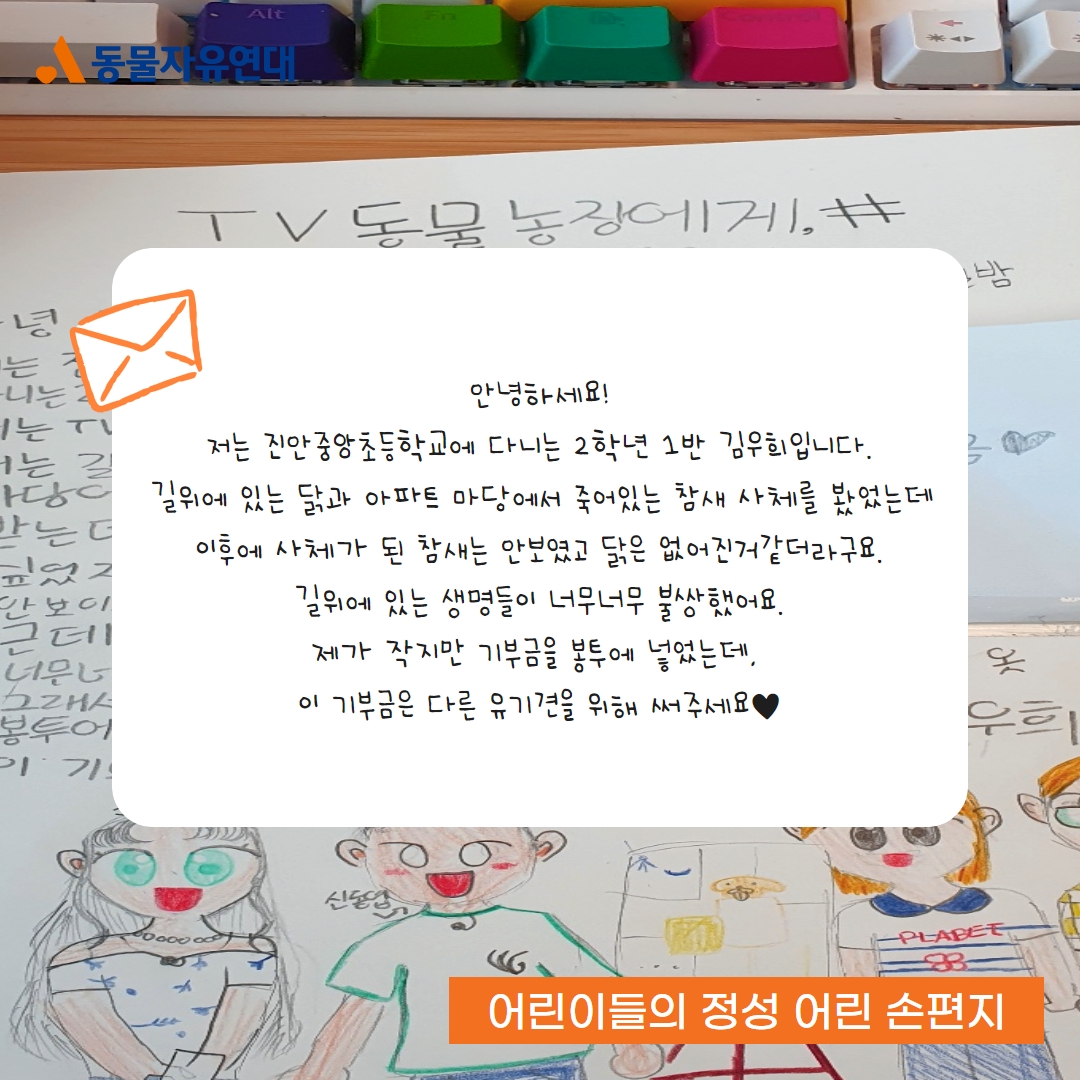 Alt
Fn
Control
동물자유연대
TV 동물농장에게,#
안녕하세요!
저는 진안중앙초등학교에 다니는 2학년 1반 김우희입니다.
길위에 있는 닭과 아파트 마당에서 죽어있는 참새 사체를 봤었는데
이후에 사체가 된 참새는 안보였고 닭은 없어진거같더라구요.
길위에 있는 생명들이 너무너무 불쌍했어요.
제가 작지만 기부금을 봉투에 넣었는데,
이 기부금은 다른 유기견을 위해 써주세요♥
우희
신동엽
PLABEE
어린이들의 정성 어린 손편지